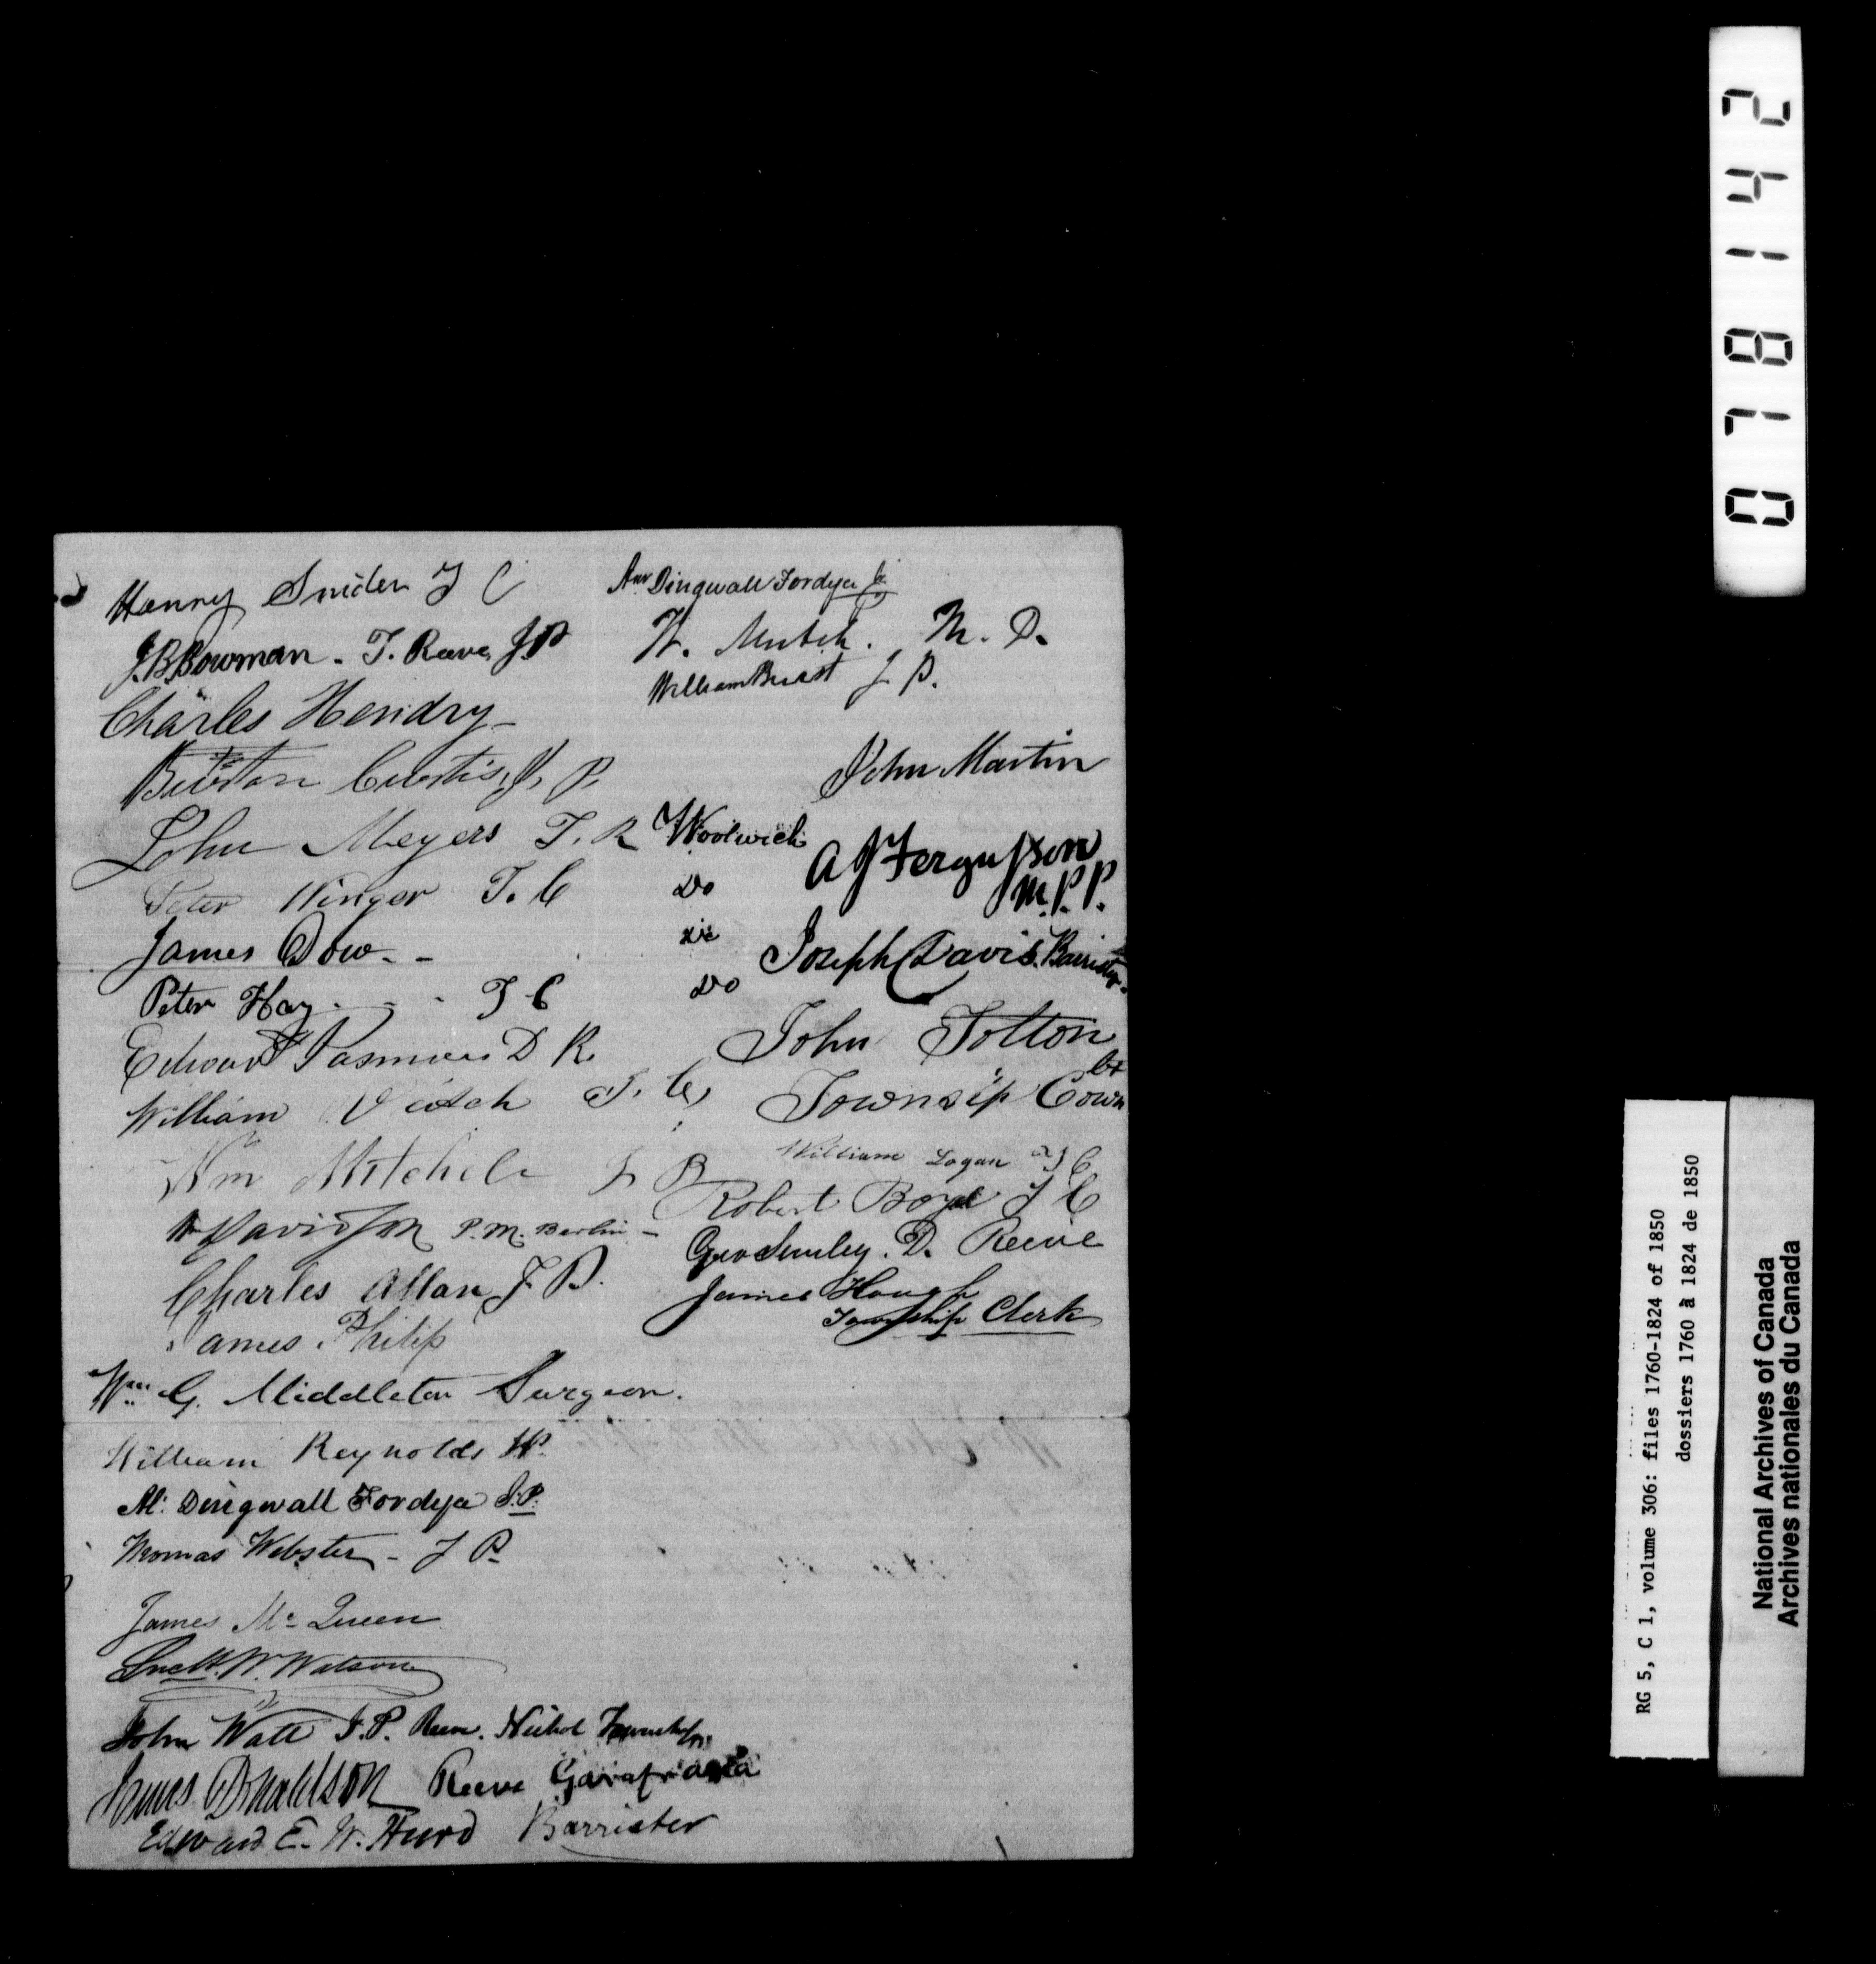 Henry Snider T C
J.B. Bowman - T. Reeve, J.P
Charles Hendry
Burton Curtis, J. P.
John Meyers T. R Woolwich
Peter Winger T. C Do
James Dow - - Do
Peter Hay - - - T C Do
Edward Pasmore D R.
William Veitch T. C,
Wm Mitchele
Davidson P.M. Berlin -
Charles Allan J. P.
James Philip
Wm. G. Middleton Surgeon.
William Reynolds JP.
Al: Dingwall Fordyce J.P.
Thomas Webster - J P.
James Mc Queen
W. Watson
John Watt J.P. Reeve. Nichol Township
James Donaldson Reeve Garafraxa
Edward E. W. Hurd Barrister
Dingwall Fordyce
W. Mutch. M. D.
William J P.
John Martin
A J Fergusson
M.P.P.
Joseph Davis. Barrister.
John Tolton
Townsip Cown
William Logan T C
Robert Boyd T C
Geo Smiley. D. Reeve
James Hough
Township Clerk
241870
RG 5, C 1, volume 306: files 1760-1824 of 1850
dossiers 1760 à 1824 de 1850
National Archives of Canada
Archives nationales du Canada